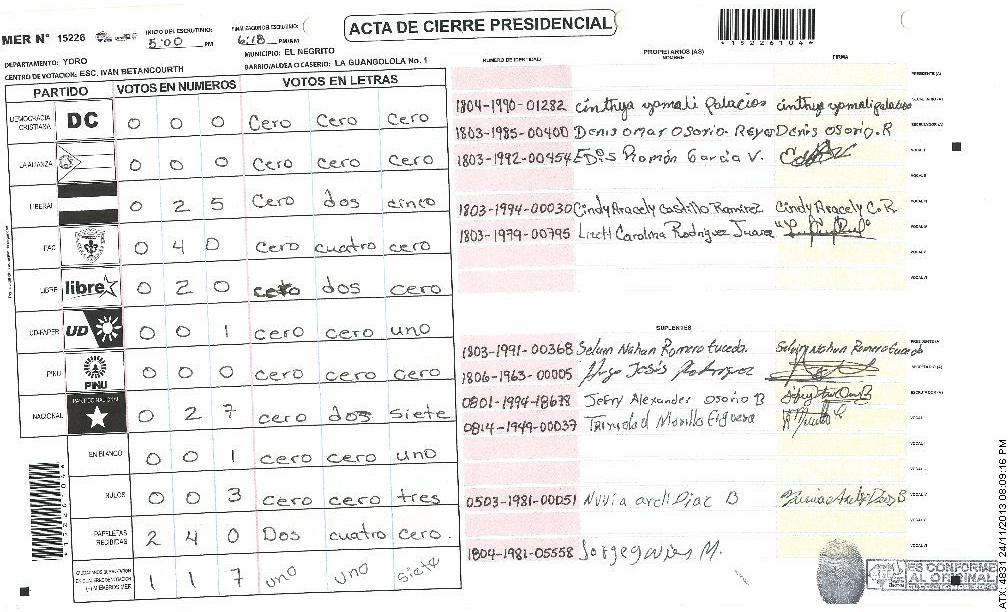 ACTA DE CIERRE PRESIDENCIAL
MER N° 15226
INICIO DEL ESCRUTINIO:
5:00 PM
FINALIZACION DEL ESCRUTINIO:
6:18 PM/AM
*15226104*
DEPARTAMENTO: YORO
MUNICIPIO: EL NEGRITO
CENTRO DE VOTACION: ESC. IVAN BETANCOURTH
BARRIO/ALDEA O CASERIO: LA GUANGOLOLA No. 1
PARTIDO VOTOS EN NUMEROS VOTOS EN LETRAS
DEMOCRACIA CRISTIANA DC 0 0 0 Cero Cero Cero
LA ALIANZA 0 0 0 Cero cero cero
LIBERAL 0 2 5 Cero dos cinco
PAC 0 4 0 cero cuatro cero
LIBRE libre 0 2 0 cero dos cero
UD-FAPER UD 0 0 1 cero cero uno
PINU PINU 0 0 0 cero cero cero
NACIONAL PARTIDO NACIONAL 0 2 7 cero dos siete
EN BLANCO 0 0 1 cero cero uno
NULOS 0 0 3 cero cero tres
PAPELETAS RECIBIDAS 2 4 0 Dos cuatro cero.
1 1 7 uno uno siete
NUMERO DE IDENTIDAD
PROPIETARIOS (AS)
NOMBRE
FIRMA
PRESIDENTE(A)
1804-1990-01282 cinthya yamali palacios cinthya yamali palacios SECRETARIO(A)
1803-1985-00400 Denis Omar Osorio Reyes Denis Osorio. R ESCRUTADOR(A)
1803-1992-00454 Edis Román Garcia V. VOCAL I
VOCAL II
1803-1994-00030 Cindy Aracely Castillo Ramirez Cindy Aracely C.R VOCAL III
1803-1979-00795 Lizett Carolina Rodriguez Juarez VOCAL IV
VOCAL V
VOCAL VI
SUPLENTES
1803-1991-00368 Selvin Nahun Romero Euceda. Selvin Nahun Romero Euceda PRESIDENTE(A)
1806-1963-00005 Hugo Jesús Rodriguez SECRETARIO (A)
0801-1994-18678 Jefry Alexander Osorio B ESCRUTADOR(A)
0814-1949-00037 Trinydad Morillo Figueroa VOCAL I
VOCAL II
VOCAL III
0503-1981-00051 Nuvia areli Diaz B VOCAL IV
VOCAL V
1804-1981-05558 VOCAL VI
ES CONFORME AL ORIGINAL
ATX: 4831 24/11/2013 08:09:16 PM